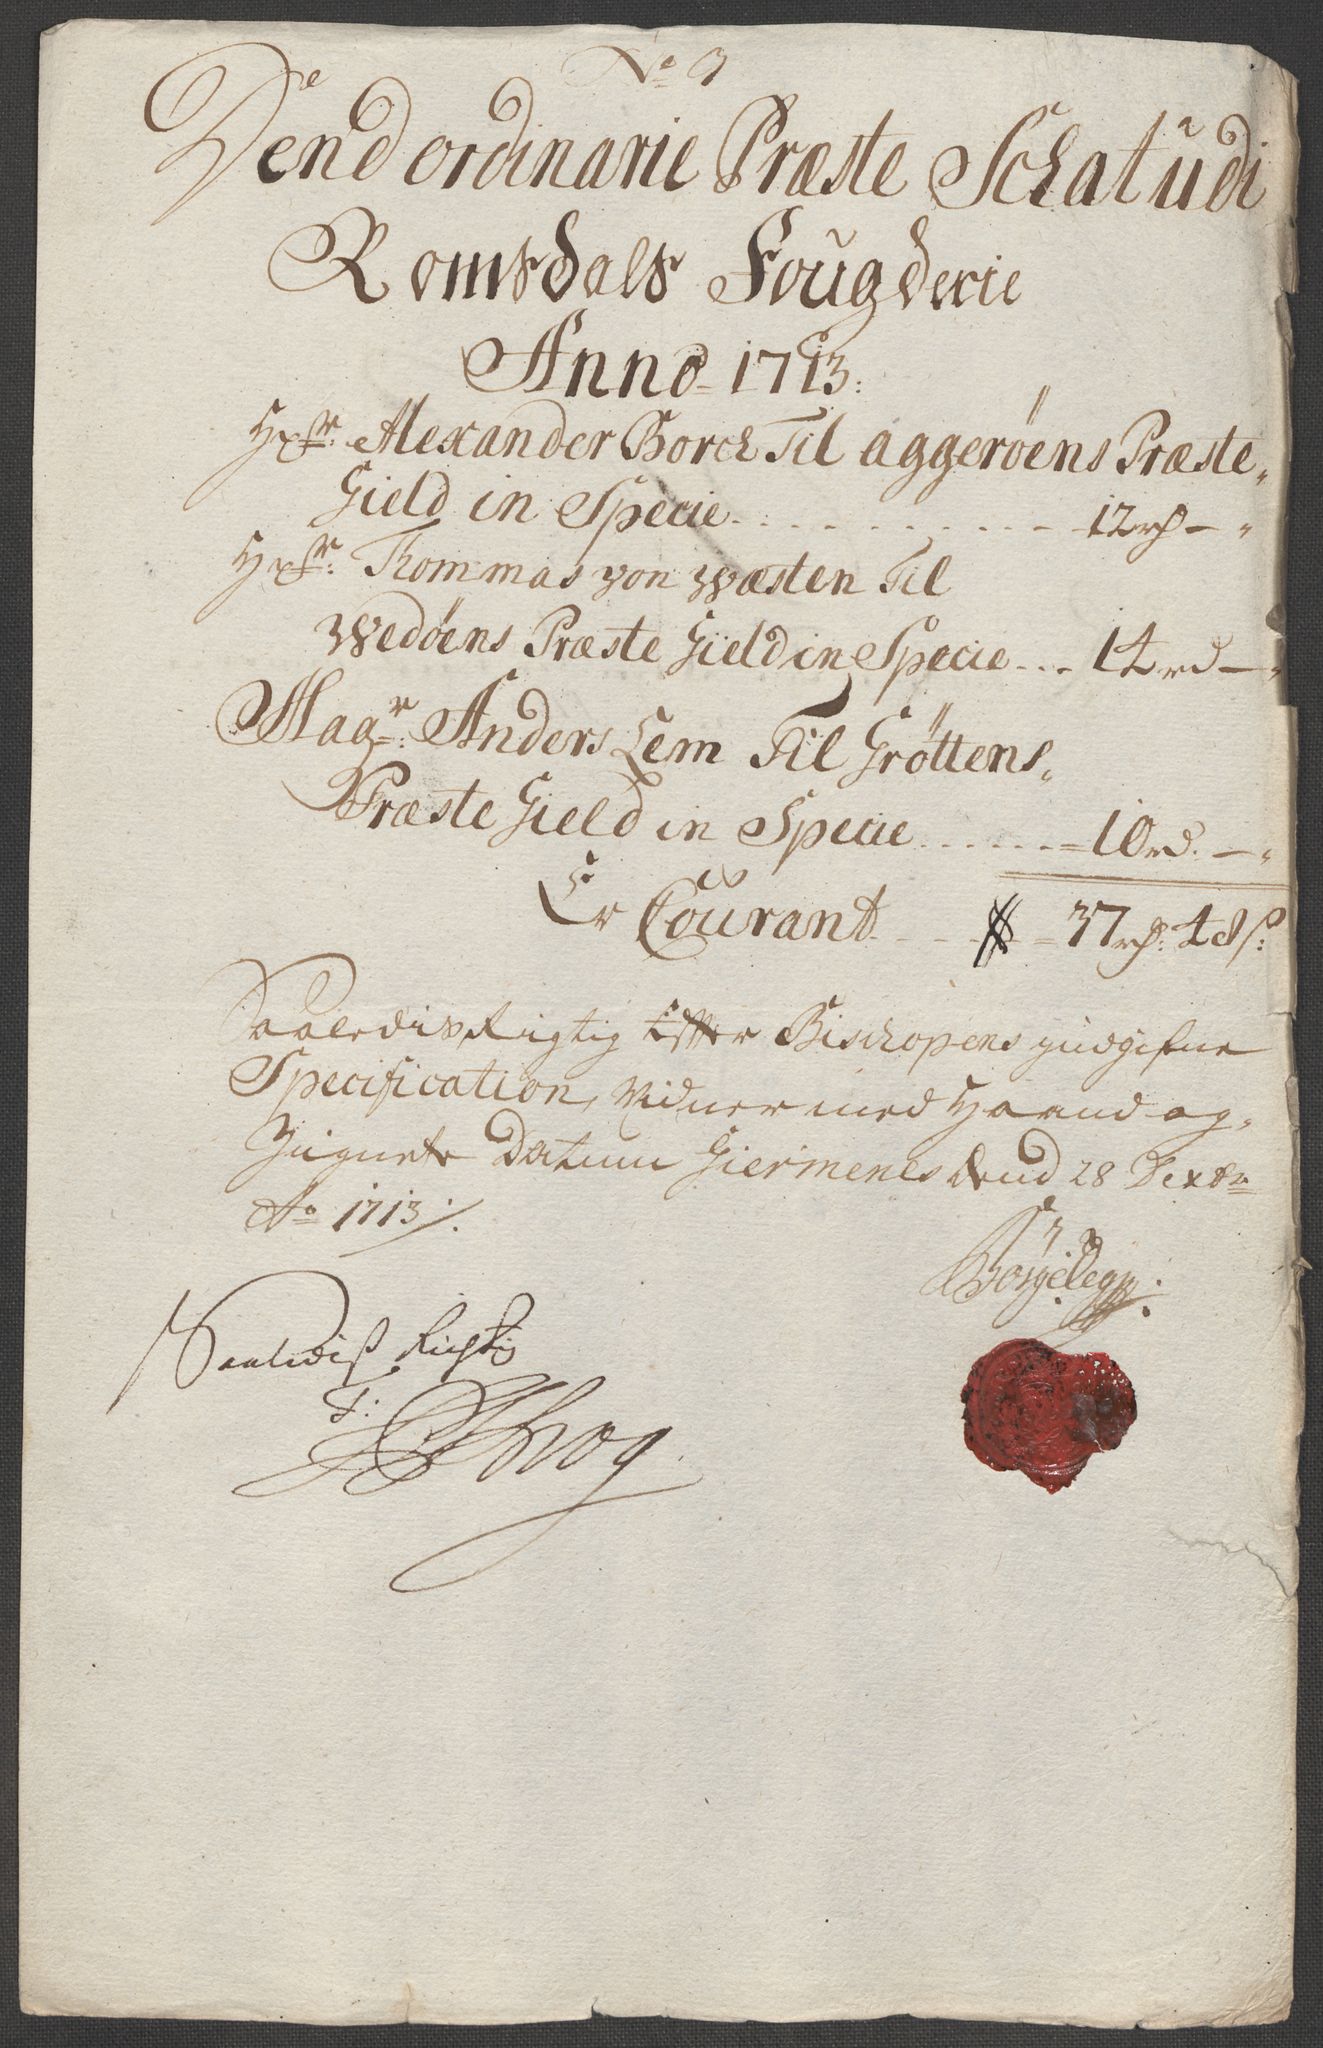 No 9
Dend ordinarie Præste Schat udi
Romsdals Fougderie
Anno 1713:
Hr: Alexander Borch Til aggerøens Præste„
Gield in Specie 12 rd — „
Hr: Thommas von Wæsten Til
Wedøens Præste Gield in Specie 14 rd — „
Magr: Anders Lem Til Grøttens„
Præste Gield in Specie 10 rd. — „
Er Courant 37 rd: 48 s:
Saaledis Rigtig Efter Bischopens udgifne
Specification, Vidner med Haand og„
Zignete Datum Giermenes dend 28
Ao 1713/.
Saaledis Richtig